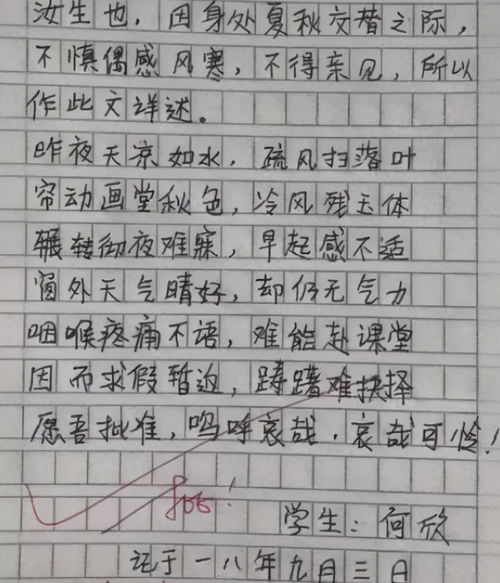 汝生也，因身处夏秋交替之际，
不慎偶感风寒，不得亲见，所以
作此文详述。
昨夜天凉如水，疏风扫落叶
帘动画堂秋色，冷风残玉体
辗转彻夜难寐，早起感不适
窗外天气晴好，却仍无气力
咽喉疼痛不语，难能赴课堂
因而求假暂返，踌躇难抉择
愿吾批准，呜呼哀哉，哀哉可怜！
学生：何欣
记于一八年九月三日